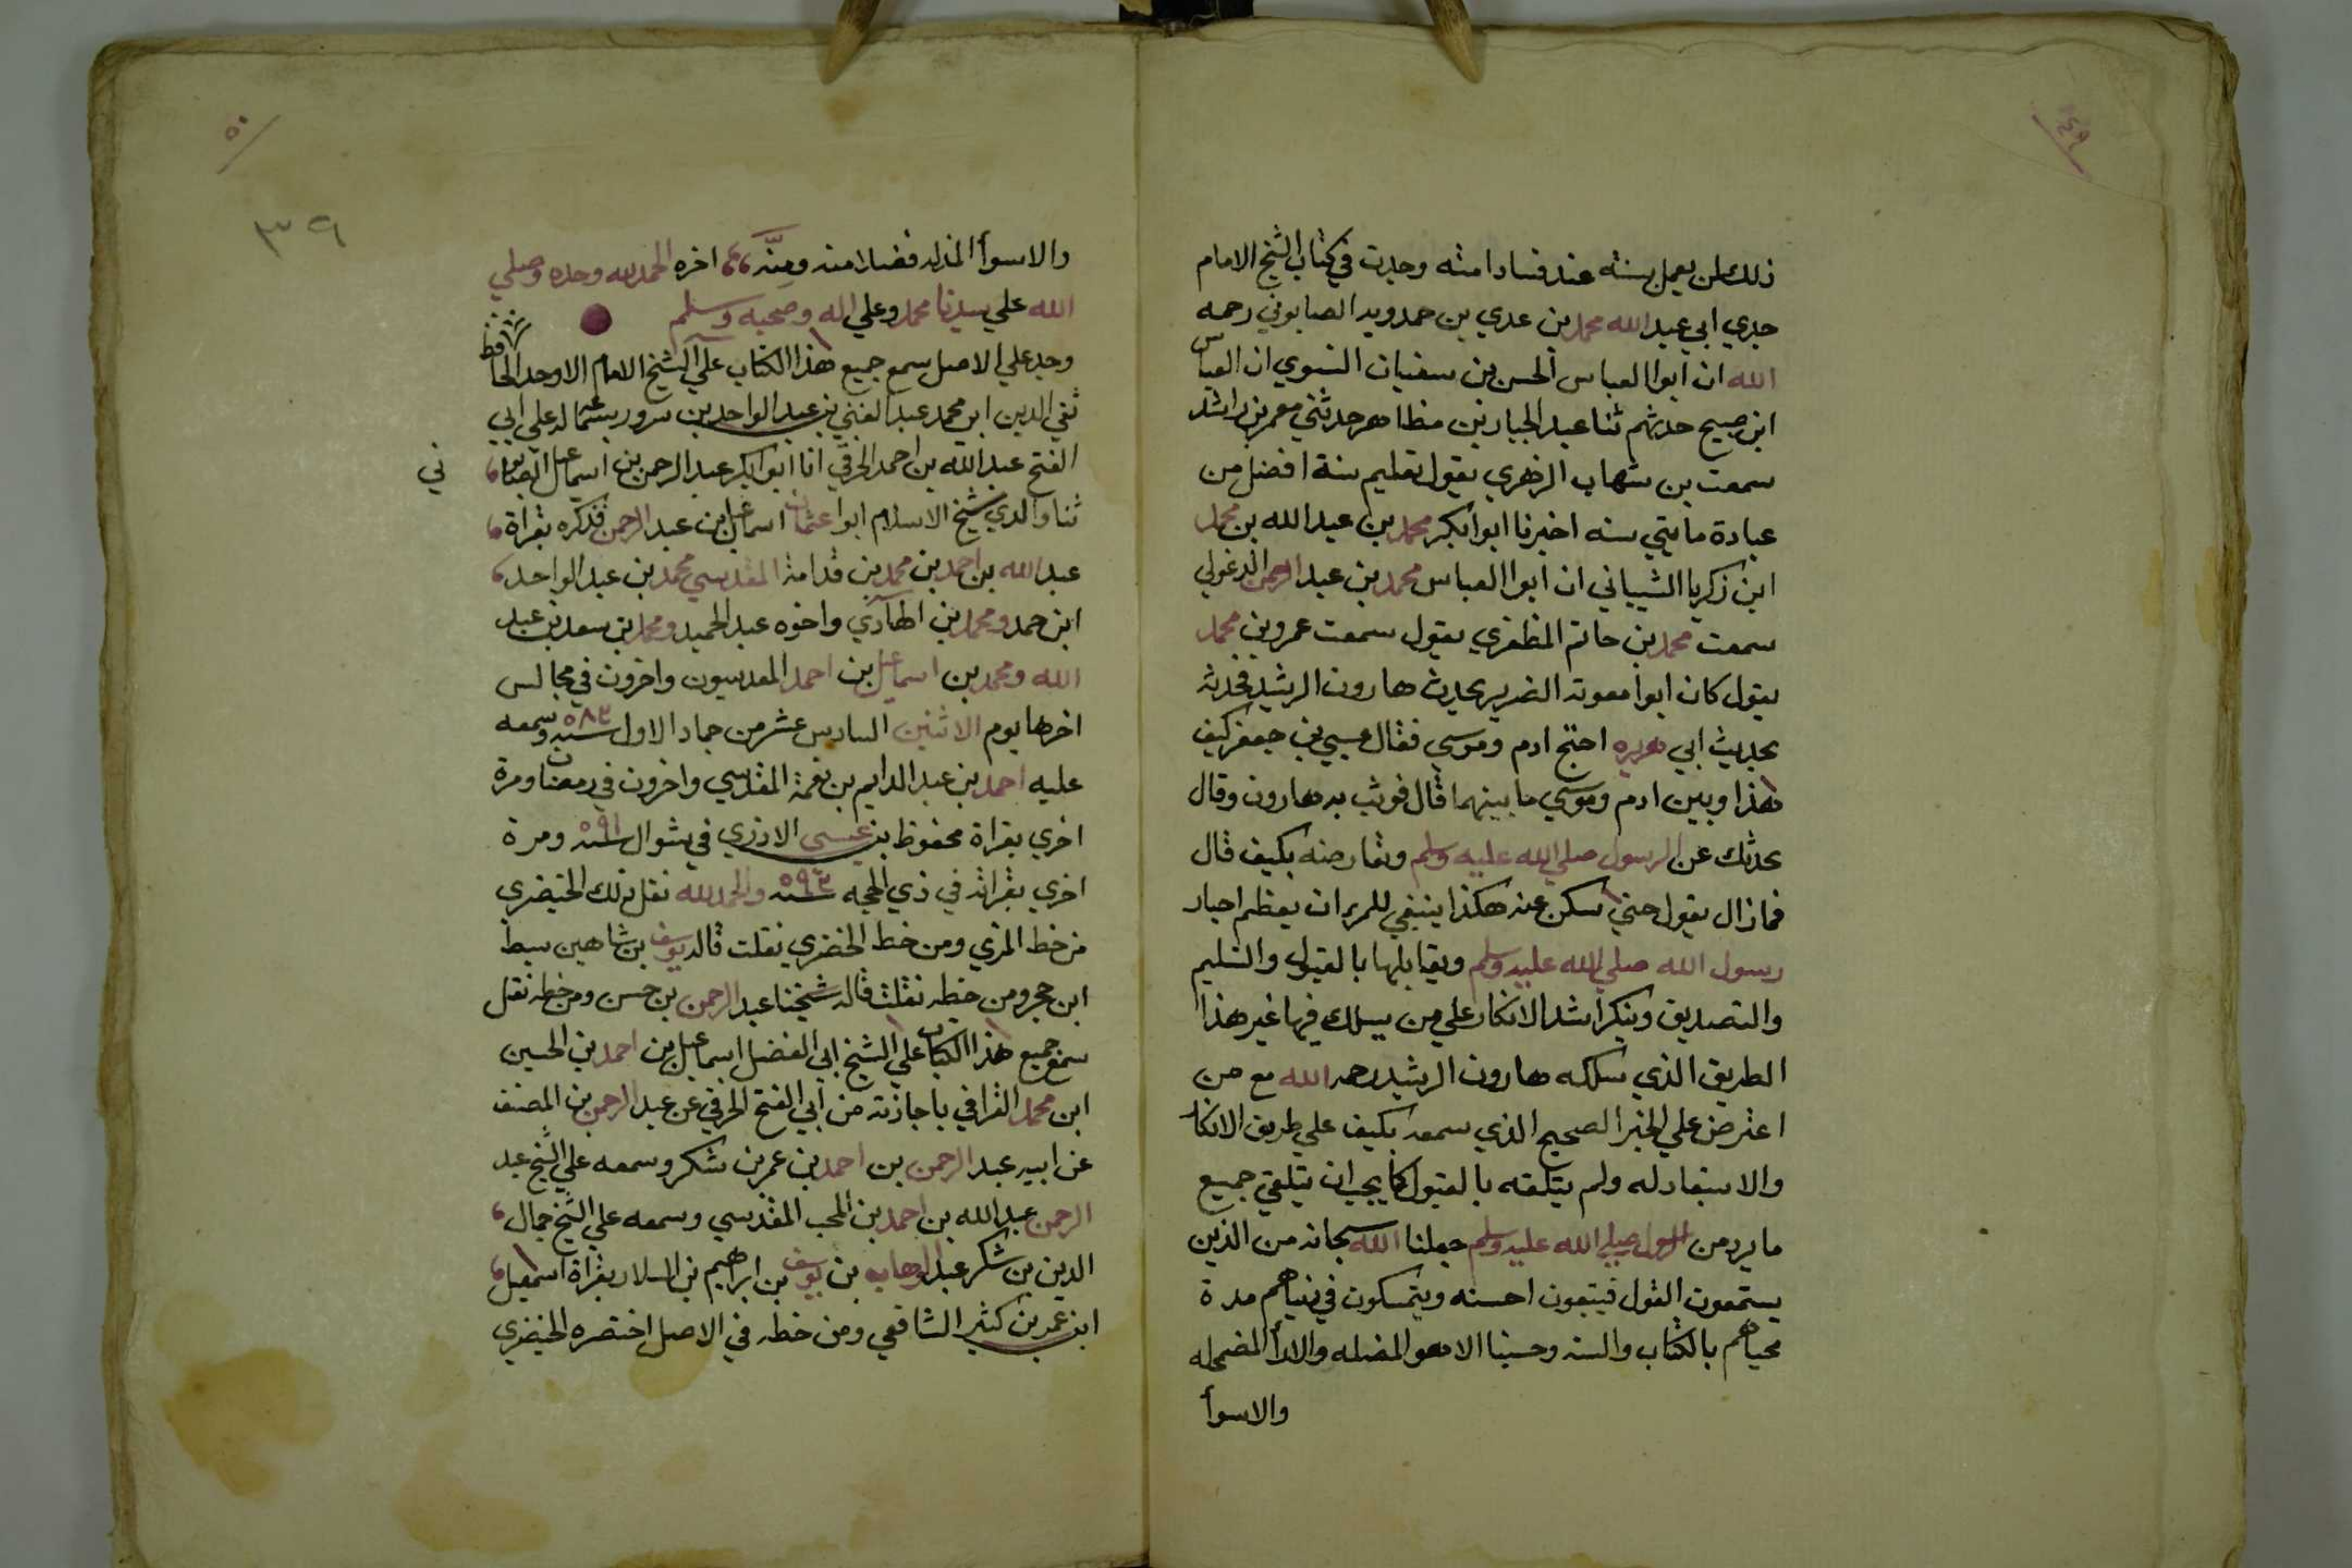 ٤٩
ذلك لمن يعمل بسنته عند فساد امته وجدت في كتاب الشيخ الامام
جدي ابي عبد الله محمد بن عدي بن حمدويه الصابوني رحمه
الله ان ابوا العباس الحسن بن سفيان النسوي ان العباس
ابن صبيح حدثهم ثنا عبد الجبار بن مظاهر حدثني معمر بن راشد
سمعت بن شهاب الزهري يقول تعليم سنة افضل من
عبادة مايتي سنه اخبرنا ابوا بكر محمد بن عبد الله بن محمد
ابن زكريا الشيباني ان ابوا العباس محمد بن عبد الرحمن الدغولي
سمعت محمد بن حاتم المظفري يقول سمعت عمرو بن محمد
يقول كان ابوا معوية الضرير يحدث هارون الرشيد فحدثه
بحديث ابي هريره احتج ادم وموسي فقال عيسي بن جعفر كيف
هذا وبين ادم وموسي ما بينهما قال فوثب به هارون وقال
يحدثك عن الرسول صلي الله عليه وسلم وتعارضه بكيف قال
فما زال يقول حتي سكن عنه هكذا ينبغي للمرء ان يعظم اخبار
رسول الله صلي الله عليه وسلم ويقابلها بالقبول والتسليم
والتصديق وينكر اشد الانكار علي من يسلك فيها غير هذا
الطريق الذي سلكه هارون الرشيد رحمه الله مع من
اعترض علي الخبر الصحيح الذي سمعه بكيف علي طريق الانكار
والاستبعاد له ولم يتلقه بالقبول كما يجب ان يتلقي جميع
ما يرد من الرسول صلي الله عليه وسلم جعلنا الله سبحانه من الذين
يستمعون القول فيتبعون احسنه ويتمسكون في دنياهم مدة
محياهم بالكتاب والسنه وجنبنا الاهوا المضله والارأ المضمحله
والاسوأ
٥٠
٣٩
والاسوأ المذله فضلا منه ومنه اخره الحمد لله وحده وصلي
الله علي سيدنا محمد وعلي اله وصحبه وسلم
وجد علي الاصل سمع جميع هذا الكتاب علي الشيخ الامام الاوحد الحافظ
تقي الدين ابي محمد عبد الغني بن عبد الواحد بن سرور بسماعه له علي ابي
الفتح عبد الله بن احمد الخرقي انا ابوا بكر عبد الرحمن بن اسماعيل الصابوني
ثنا والدي شيخ الاسلام ابوا عثمان اسماعيل بن عبد الرحمن فذكره بقراة
عبد الله بن احمد بن محمد بن قدامة المقدسي محمد بن عبد الواحد
ابن حمد ومحمد بن الهادي واخوه عبد الحميد ومحمد بن سعد بن عبد
الله ومحمد بن اسماعيل بن احمد المقدسيون واخرون في مجالس
اخرها يوم الاثنين السادس عشر من جماد الاول سنه ٥٨٣ وسمعه
عليه احمد بن عبد الدايم بن نعمة المقدسي واخرون في رمضان ومرة
اخري بقراة محفوظ بن عيسى الازدي في شوال سنه ٥٩١ ومرة
اخري بقراته في ذي الحجه سنه ٥٩٣ والحمد لله نقل ذلك الخيضري
من خط المزي ومن خط الخضري نقلت قاله يوسف بن شاهين سبط
ابن حجر ومن خطه نقلت قاله شيخنا عبد الرحمن بن حسن ومن خطه نقل
سمع جميع هذا الكتاب علي الشيخ ابي الفضل اسماعيل بن احمد بن الحسين
ابن محمد القرافي باجازته من ابي الفتح الخرقي عن عبد الرحمن بن المصنف
عن ابيه عبد الرحمن بن احمد بن عمر بن شكر وسمعه علي الشيخ عبد
الرحمن عبد الله بن احمد بن المحب المقدسي وسمعه علي الشيخ جمال
الدين بن شكر عبد الوهاب بن يوسف بن ابراهيم بن السلار بقراة اسمعيل
ابن عمر بن كثير الشافعي ومن خطه في الاصل اختصره الخيضري